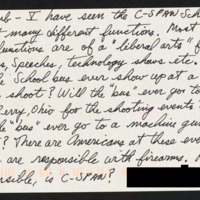 ub - I have seen the C-SPAN Sch
t many different functions. Most
functions are of a "liberal arts" f
s, Speeches, technology shows etc.
School bus ever show up at a
shoot? Will the "bus" ever go to
Perry, Ohio for the shooting events
e "bus" ever go to a machine gun
? There are Americans at these eve
are responsible with firearms.
nsible, is C-SPAN?